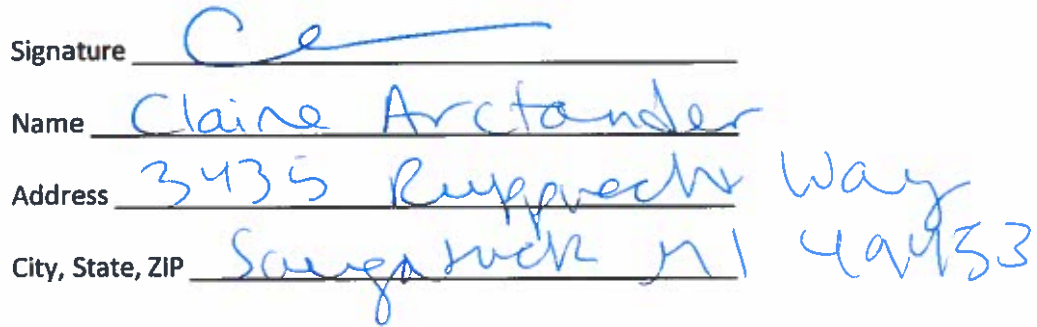 Signature
Name Claire Arctander
Address 3435 Rupprecht Way
City, State, ZIP Saugatuck MI 49453